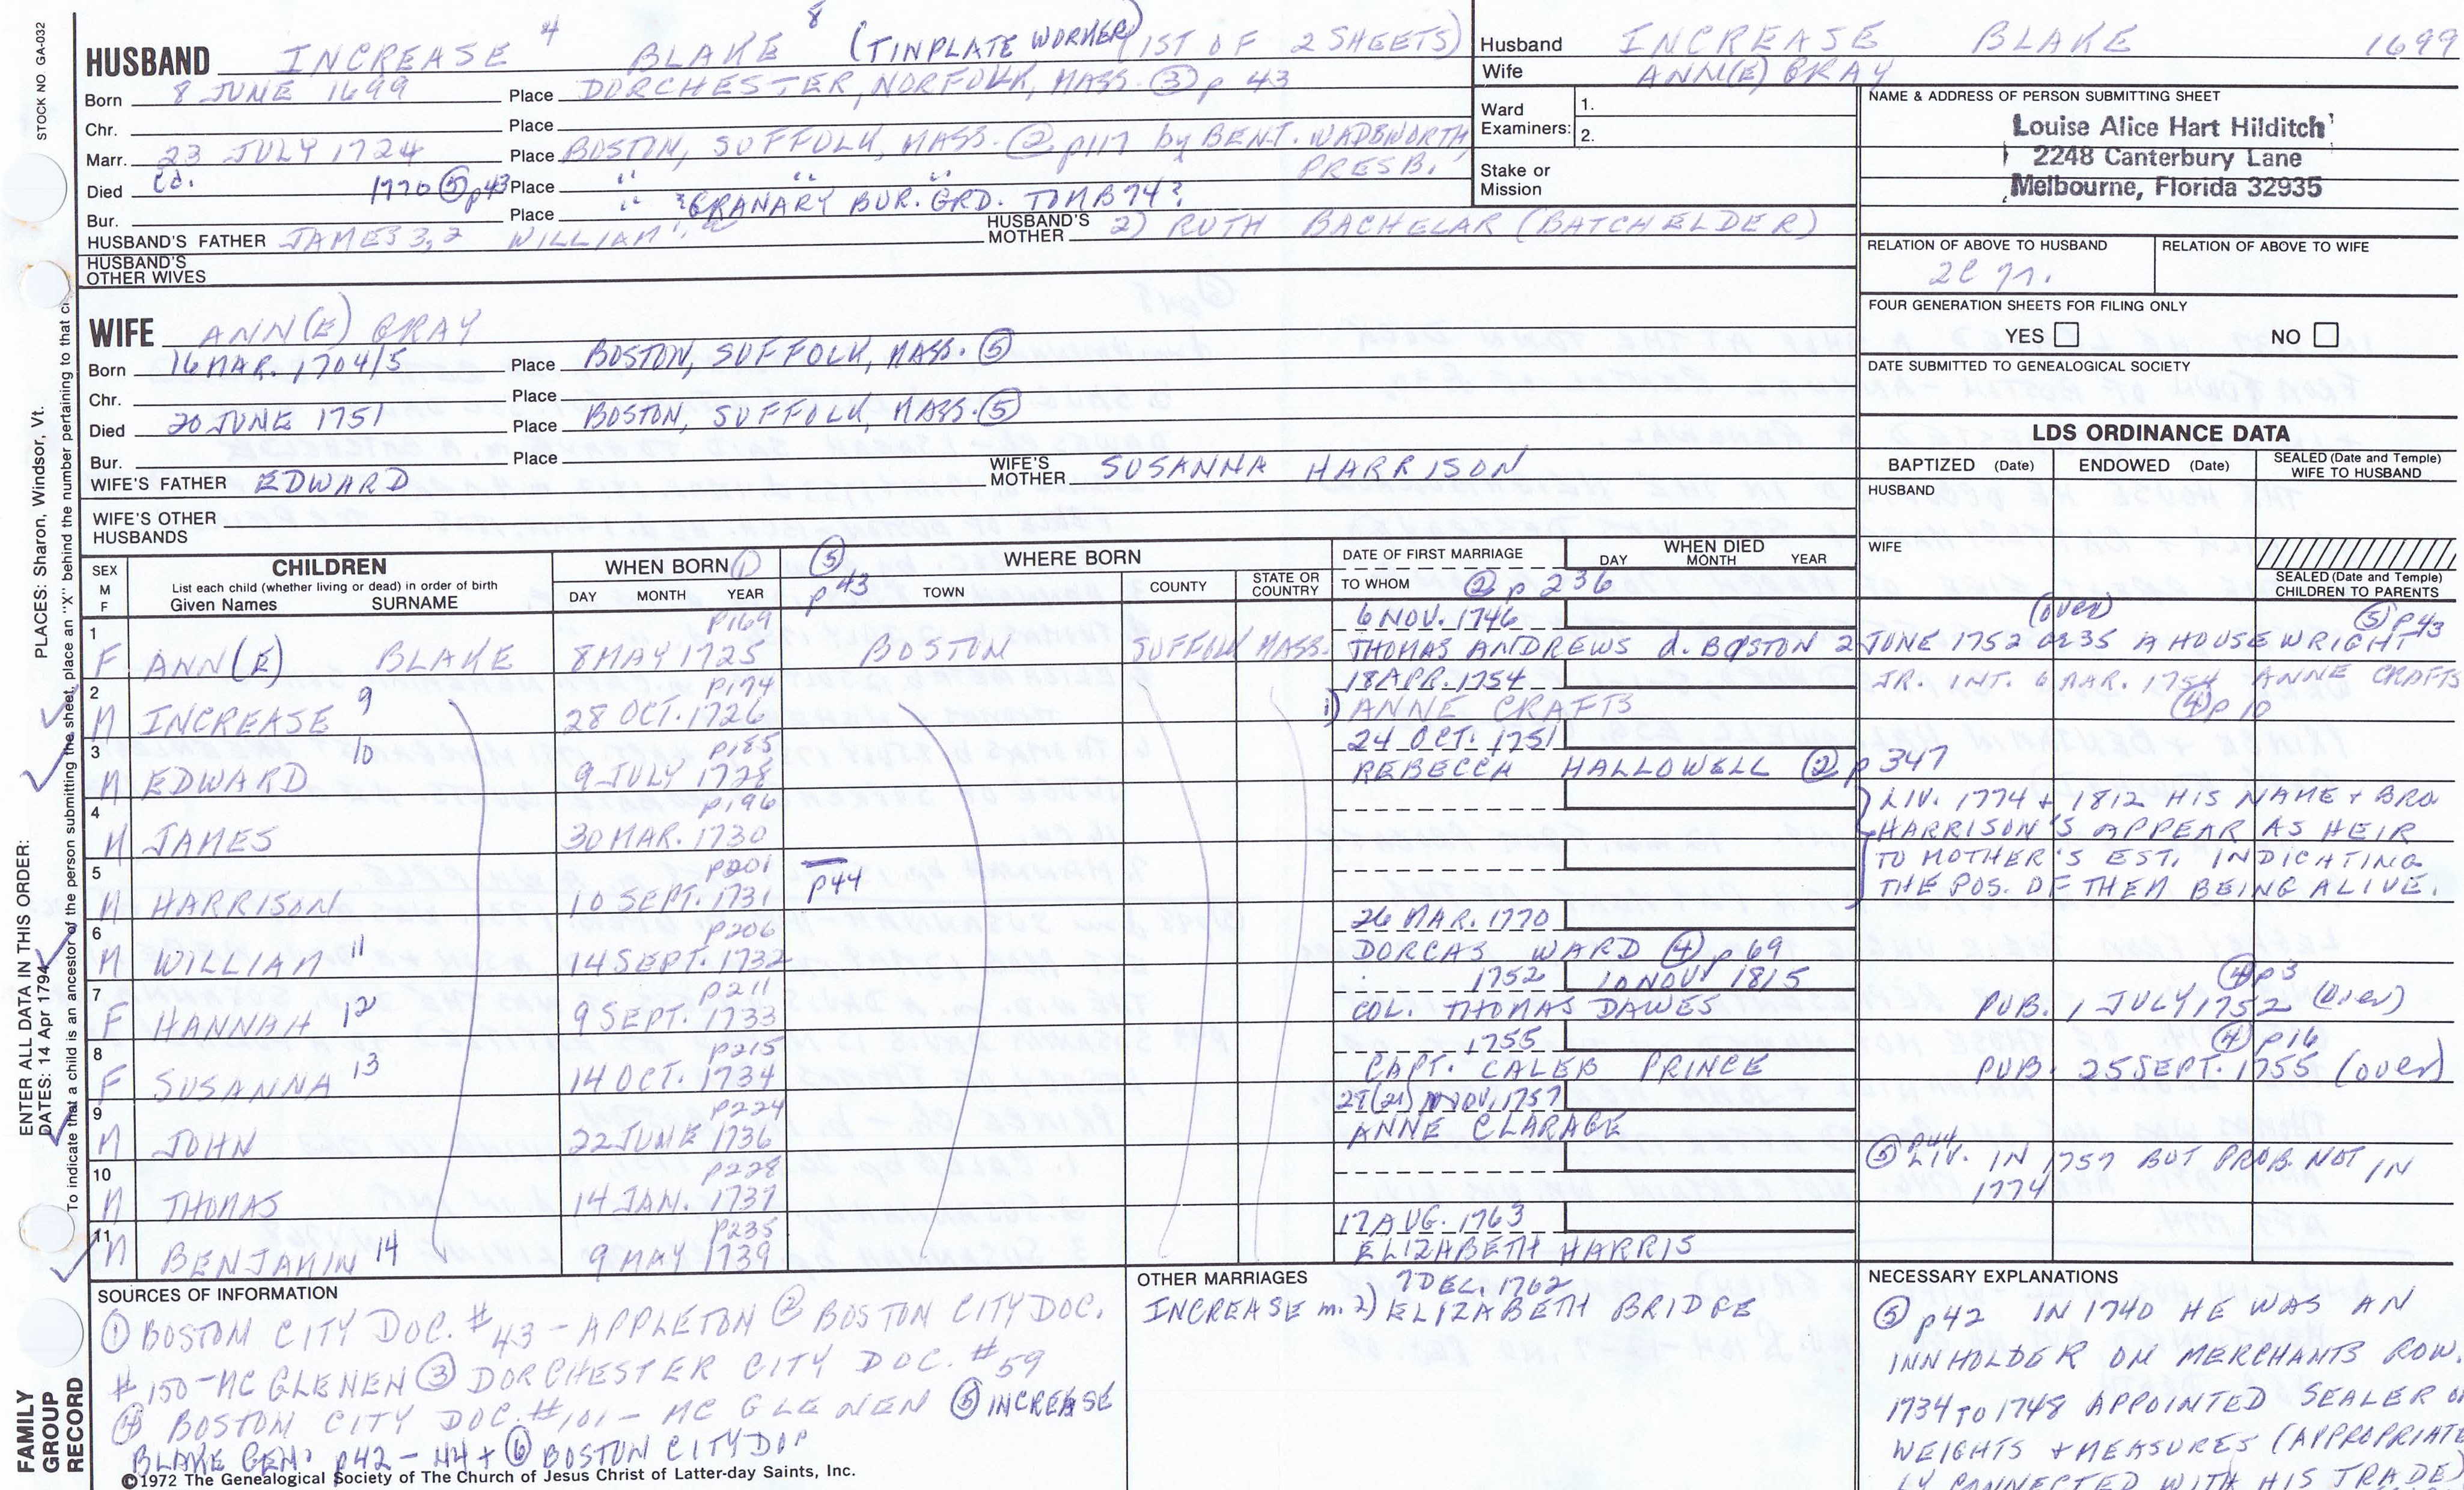 STOCK NO GA-032
HUSBAND INCREASE 4 BLAKE 8 (TINPLATE WORKER) (1ST OF 2 SHEETS)
Born 8 JUNE 1699 Place DORCHESTER, NORFOLK, MASS. ③ p 43
Chr. Place
Marr. 23 JULY 1724 Place BOSTON, SUFFOLK, MASS. ② p117 by BENJ. WADSWORTH, PRESB.
Died Ed. 1770 ⑤ p43 Place " " "
Bur. Place " ?GRANARY BUR. GRD. TOMB 74?
HUSBAND'S FATHER JAMES 3, 2 WILLIAM 1 HUSBAND'S MOTHER 2) RUTH BACHELAR (BATCHELDER)
HUSBAND'S OTHER WIVES
WIFE ANN(E) GRAY
Born 16 MAR. 1704/5 Place BOSTON, SUFFOLK, MASS. ⑤
Chr. Place
Died 20 JUNE 1751 Place BOSTON, SUFFOLK, MASS. ⑤
Bur. Place
WIFE'S FATHER EDWARD WIFE'S MOTHER SUSANNA HARRISON
WIFE'S OTHER HUSBANDS
Husband INCREASE BLAKE 1699
Wife ANN(E) GRAY
Ward Examiners: 1.
2.
Stake or Mission
NAME & ADDRESS OF PERSON SUBMITTING SHEET
Louise Alice Hart Hilditch
2248 Canterbury Lane
Melbourne, Florida 32935
RELATION OF ABOVE TO HUSBAND RELATION OF ABOVE TO WIFE
FOUR GENERATION SHEETS FOR FILING ONLY
YES NO
DATE SUBMITTED TO GENEALOGICAL SOCIETY
LDS ORDINANCE DATA
BAPTIZED (Date) ENDOWED (Date) SEALED (Date and Temple) WIFE TO HUSBAND
HUSBAND
WIFE
SEALED (Date and Temple) CHILDREN TO PARENTS
SEX M F CHILDREN List each child (whether living or dead) in order of birth Given Names SURNAME
WHEN BORN ① DAY MONTH YEAR
⑤ p43 WHERE BORN TOWN COUNTY STATE OR COUNTRY
DATE OF FIRST MARRIAGE TO WHOM ② p 236
WHEN DIED DAY MONTH YEAR
1 F ANN(E) BLAKE p169 8 MAY 1725 BOSTON SUFFOLK MASS. 6 NOV. 1746 (over) ⑤ p43
THOMAS ANDREWS d. BOSTON 2 JUNE 1752 ae 35 A HOUSEWRIGHT
2 M INCREASE 9 p174 28 OCT. 1726 18 APR. 1754 JR. INT. 6 MAR. 1754 ANNE CRAFTS
1) ANNE CRAFTS ④ p 10
3 M EDWARD 10 p185 9 JULY 1728 24 OCT. 1751
REBECCA HALLOWELL ② p 347
4 M JAMES p196 30 MAR. 1730
LIV. 1774 + 1812 HIS NAME + BRO
HARRISON'S APPEAR AS HEIR
5 M HARRISON p201 10 SEPT. 1731 p44
TO MOTHER'S EST. INDICATING
THE POS. OF THEM BEING ALIVE.
6 M WILLIAM 11 p206 14 SEPT. 1732 26 MAR. 1770
DORCAS WARD ④ p 69
7 F HANNAH 12 p211 9 SEPT. 1733 1752 10 NOV. 1815 ④ p3
COL. THOMAS DAWES PUB. 1 JULY 1752 (over)
8 F SUSANNA 13 p215 14 OCT. 1734 1755 ④ p16
CAPT. CALEB PRINCE PUB. 25 SEPT. 1755 (over)
9 M JOHN p224 22 JUNE 1736 NOV. 1757
ANNE CLARAGE
10 M THOMAS p228 14 JAN. 1737
⑤ p44 LIV. IN 1757 BUT PROB. NOT IN
1774
11 M BENJAMIN 14 p235 9 MAY 1739 17 AUG. 1763
ELIZABETH HARRIS
SOURCES OF INFORMATION
① BOSTON CITY DOC. #43 - APPLETON ② BOSTON CITY DOC.
#150 - MC GLENEN ③ DORCHESTER CITY DOC. #59
④ BOSTON CITY DOC. #101 - MC GLENEN ⑤ INCREASE
BLAKE GEN. p42 - 44 + ⑥ BOSTON CITY DOP
©1972 The Genealogical Society of The Church of Jesus Christ of Latter-day Saints, Inc.
OTHER MARRIAGES 7 DEC. 1762
INCREASE m. 2) ELIZABETH BRIDGE
NECESSARY EXPLANATIONS
⑤ p42 IN 1740 HE WAS AN
INNHOLDER ON MERCHANTS ROW.
1734 TO 1748 APPOINTED SEALER OF
WEIGHTS + MEASURES (APPROPRIATE
LY CONNECTED WITH HIS TRADE)
PLACES: Sharon, Windsor, Vt.
ENTER ALL DATA IN THIS ORDER:
DATES: 14 Apr 1794
To indicate that a child is an ancestor of the person submitting the sheet, place an "X" behind the number pertaining to that
FAMILY GROUP RECORD